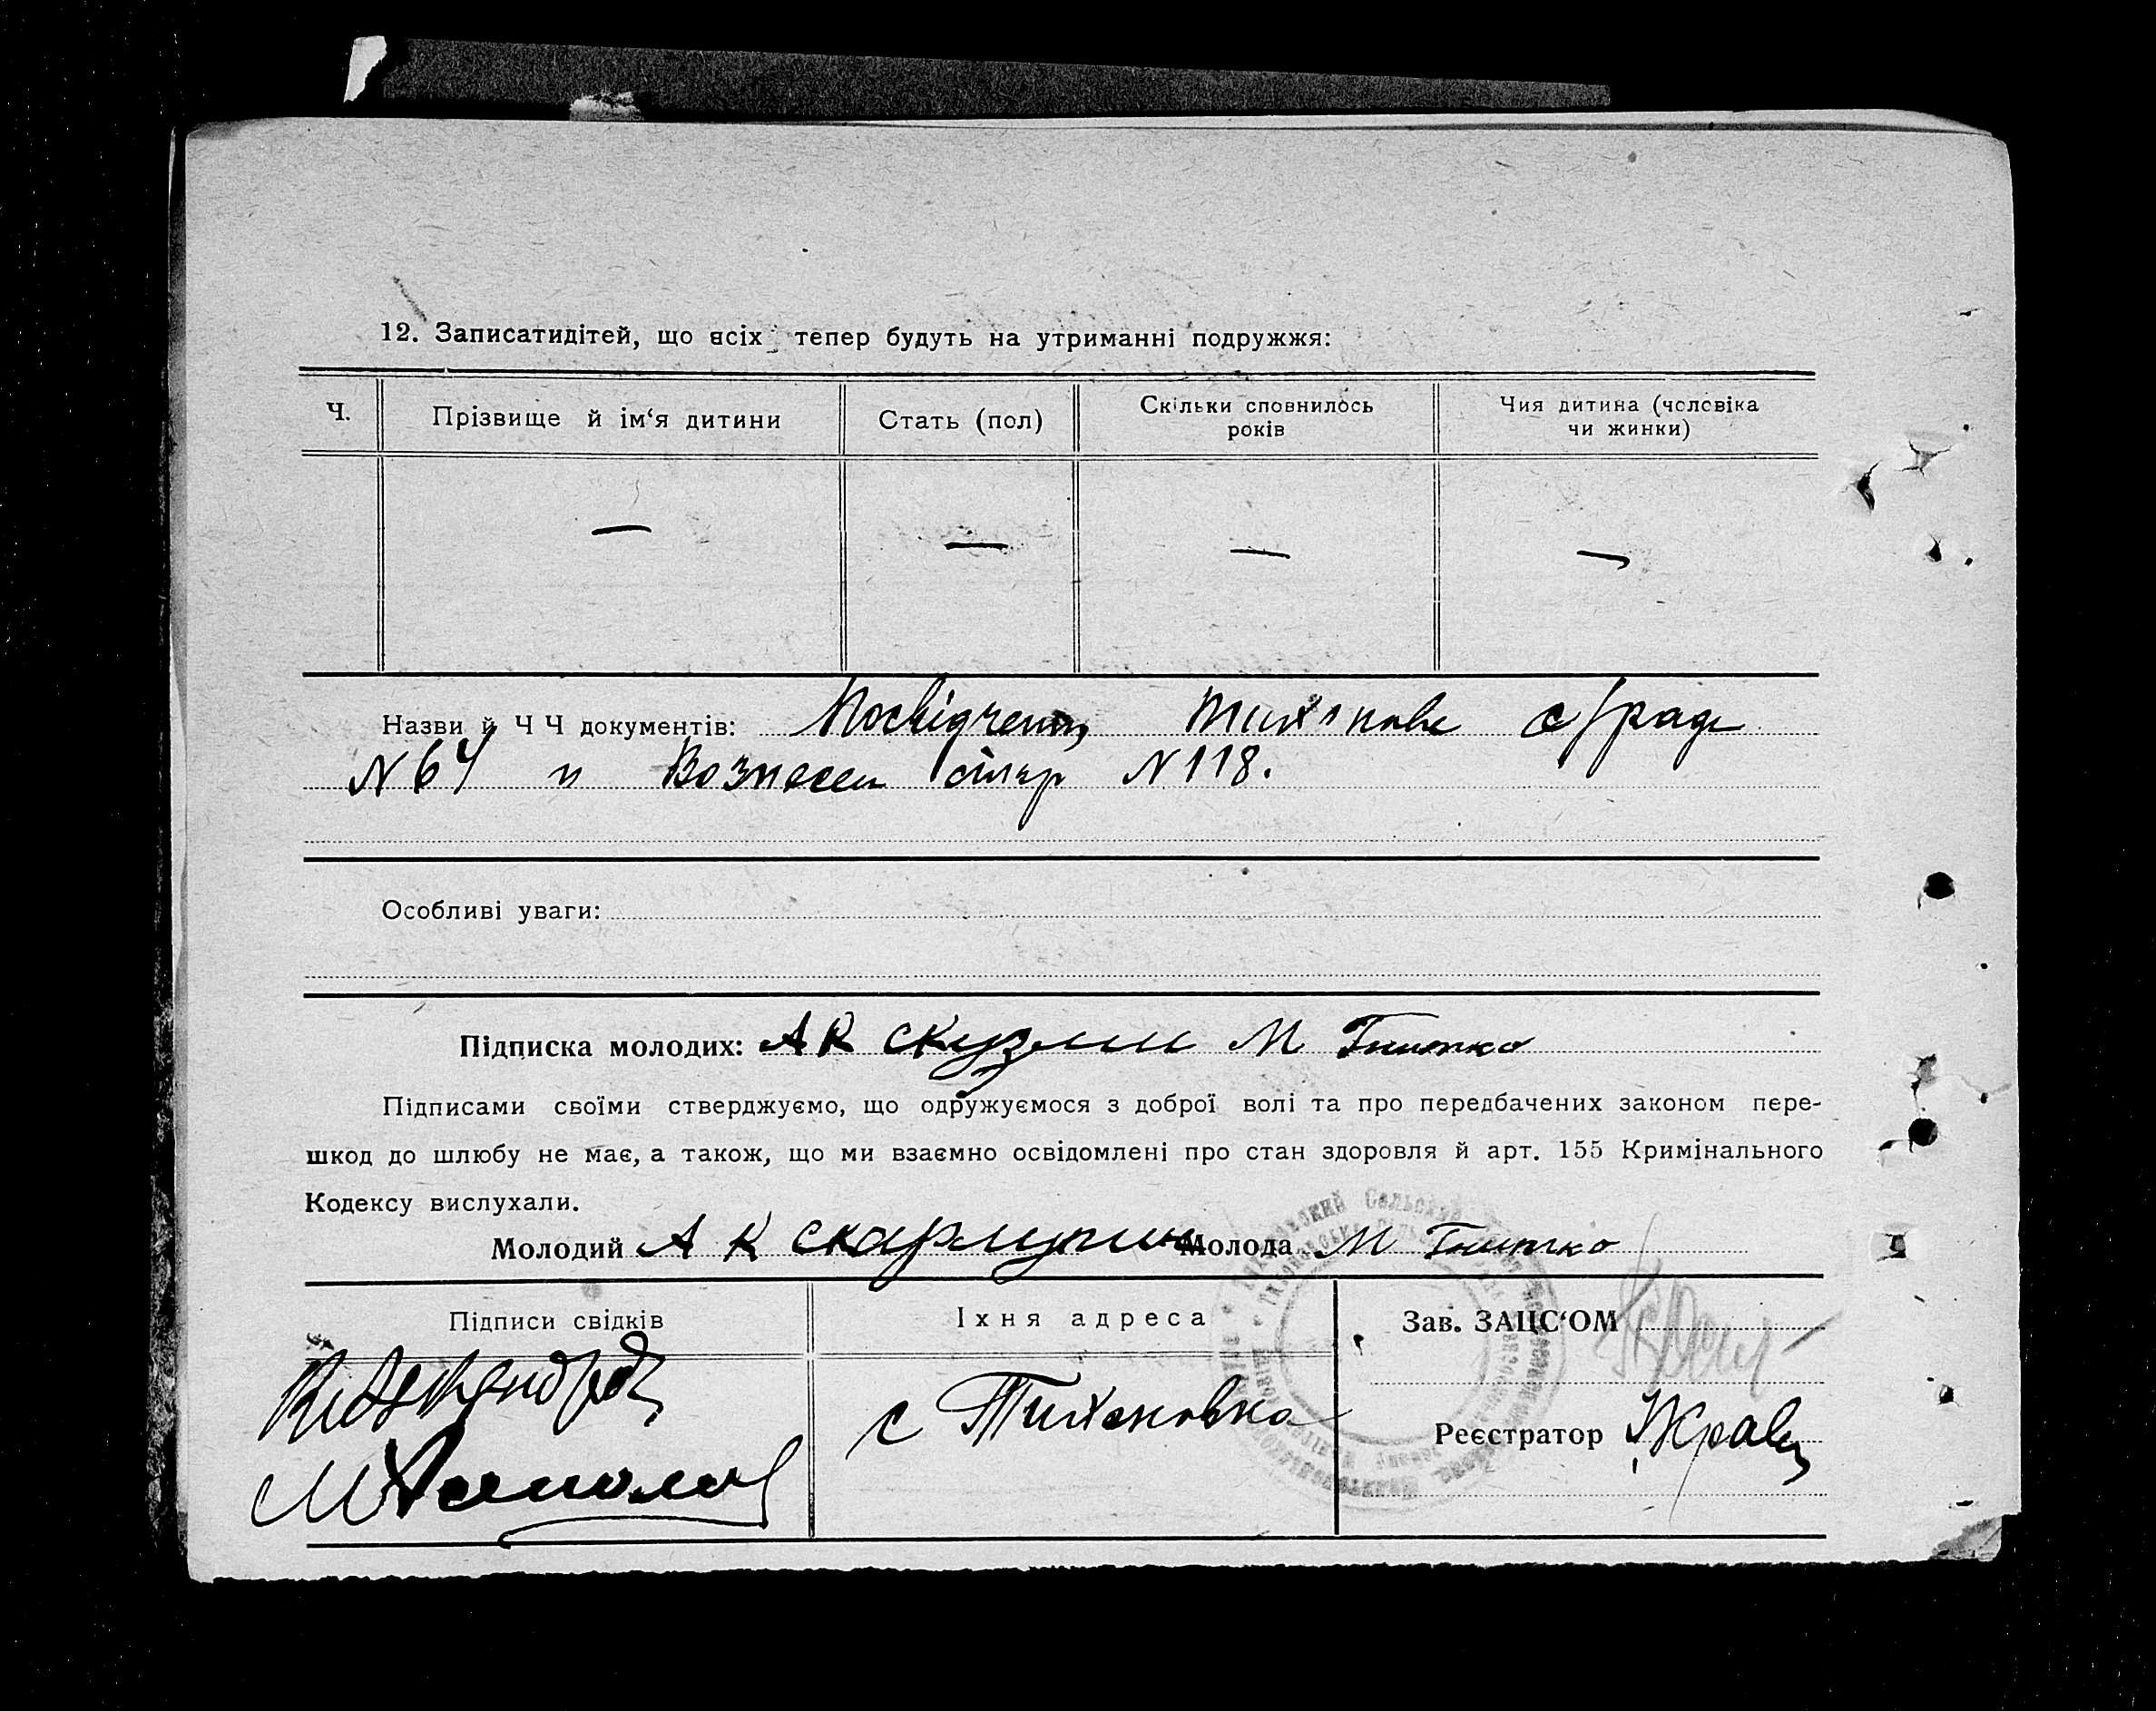 12. Записатидітей, що всіх тепер будуть на утриманні подружжя:
Ч.
Прізвище й ім‘я дитини
Стать (пол)
Скільки сповнилось
років
Чия дитина (чоловіка
чи жинки)
— — — —
Назви й Ч Ч документів: Посвідчення с/ради
N 64 и Вознесен N 118.
Особливі уваги:
Підписка молодих: А К М Гнитко
Підписами своїми стверджуємо, що одружуємося з доброї волі та про передбачених законом пере-
шкод до шлюбу не має, а також, що ми взаємно освідомлені про стан здоровля й арт. 155 Кримінального
Кодексу вислухали.
Молодий А К Молода М Гнитко
Підписи свідків
Іхня адреса
с Тихоновка
Зав. ЗАЦС‘ОМ
Реєстратор